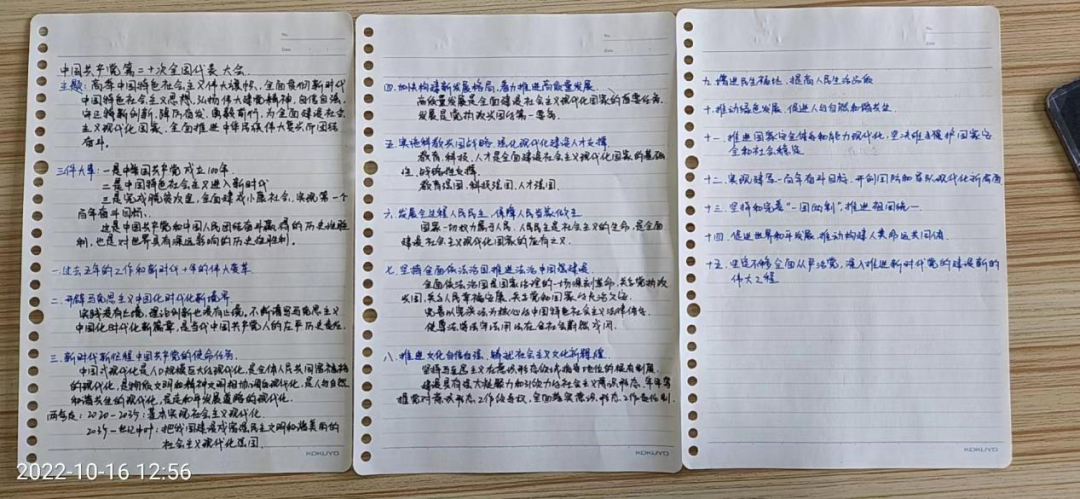 中国共产党第二十次全国代表大会
主题：高举中国特色社会主义伟大旗帜，全面贯彻新时代
中国特色社会主义思想，弘扬伟大建党精神，自信自强，
守正创新，踔厉奋发，勇毅前行，为全面建设社会
主义现代化国家、全面推进中华民族伟大复兴而团结
奋斗。
三件大事：一是中国共产党成立100年
二是中国特色社会主义进入新时代
三是完成脱贫攻坚，全面建成小康社会，实现第一个
百年奋斗目标。
这是中国共产党和中国人民团结奋斗赢得的历史性胜
利，也是对世界具有深远影响的历史性胜利。
一.过去五年的工作和新时代十年的伟大变革
二.开辟马克思主义中国化时代化新境界
实践没有止境，理论创新也没有止境，不断谱写马克思主义
中国化时代化新篇章，是当代中国共产党人的庄严历史责任。
三.新时代新征程中国共产党的使命任务
中国式现代化是人口规模巨大的现代化，是全体人民共同富裕
的现代化，是物质文明和精神文明相协调的现代化，是人与自然
和谐共生的现代化，是走和平发展道路的现代化。
2020-2035：基本实现社会主义现代化
2035-世纪中叶：把我国建设成富强民主文明和谐美丽的
社会主义现代化强国.
KOKUYO
四.加快构建新发展格局，着力推进高质量发展
高质量发展是全面建设社会主义现代化国家的首要任务，
发展是党执政兴国的第一要务。
五.实施科教兴国战略，强化现代化建设人才支撑
教育、科技、人才是全面建设社会主义现代化国家的基础
性、战略性支撑.
教育强国，科技强国，人才强国.
六.发展全过程人民民主，保障人民当家做主
国家一切权力属于人民，人民民主是社会主义的生命，是全面
建设社会主义现代化国家的应有之义.
七.坚持全面依法治国推进法治中国建设
全面依法治国是国家治理的一场深刻革命，关乎党执政
兴国，关乎人民幸福安康，关乎党和国家长治久安.
完善以宪法为核心的中国特色社会主义法律体系
使尊法学法守法用法在全社会蔚然成风.
八.推进文化自信自强，铸就社会主义文化新辉煌
坚持马克思主义在意识形态领域指导地位的根本制度，
建设具有强大凝聚力和引领力的社会主义意识形态，牢牢掌
握党对意识形态工作领导权，全面落实意识形态工作责任制.
KOKUYO
No.
Date
九.增进民生福祉，提高人民生活品质
十.推动绿色发展，促进人与自然和谐共生
十一.推进国家安全体系和能力现代化，坚决维护国家安
全和社会稳定
十二.实现建军一百年奋斗目标，开创国防和军队现代化新局面
十三.坚持和完善“一国两制”，推进祖国统一
十四.促进世界和平发展，推动构建人类命运共同体
十五.坚定不移全面从严治党，深入推进新时代党的建设新的
伟大工程
KOKUYO
2022-10-16 12:56